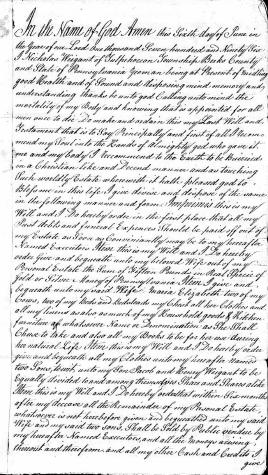 In the Name of God Amen this Sixth day of June in
the Year of our Lord One thousand Seven hundred and Ninety Six
I Nicholas Weigant of Tulpehoccon Township Berks County
and State of Pennsylvania Yeoman being at Present of
good Health and of Sound and disposing mind memory and
understanding thanks be unto god Calling unto mind the
mortality of my Body and knowing that is appointed for all
men once to die Do make and ordain this my Last Will and
Testament that is to Say Principally and first of all I Recom=
mend my Soul into the Hands of Almighty god who gave it
me and my Body I recommend to the Earth to be Buried
in a Christian like and Decent manner and as touching
Such worldly Estate wherewith it hath pleased god to
Bless me in this life I give devise and dispose of the same
in the following manner and form Imprimis this is my
Will and I Do hereby order in the first place that all my
Just debts and funeral Expences Should be paid off out of
my Estate as Soon as Conveniently may be to my hereafter
Named Executors Item this is my Will and I Do hereby
order Give and bequeath unto my beloved Wife out of my
Personal Estate the Sum of fifteen Pounds in Real Specie of
Gold or Silver Money of Pennsylvania Item I give and
bequeath unto my said Wife Maria Elizabeth two of my
Cows, two of my Beds and Bedsteads my Chest all her Clothes and
all my linens as also as much of my Household goods & Kitchen
furniture of whatsoever Name or Denomination as She Shall
Chuse to take and also all my Books to be for her use during
her natural Life Item this is my Will and I Do hereby order
give and bequeath all my Clothes unto my hereafter Named
two Sons, unto my Son Jacob and Henry Weigant to be
Equally devided to and among themselves Share and Share alike
Item this is my Will and I Do hereby order that within Six months
after my decease all the Remainder of my Personal Estate
whatsoever is not heretofore given and bequeathed unto my said
Wife and my said two Sons Shall be Sold by Public Vendue by
my hereafter Named Executors, and all the moneys arising
thereout and therefrom, and all my other Cash and Credits I
give